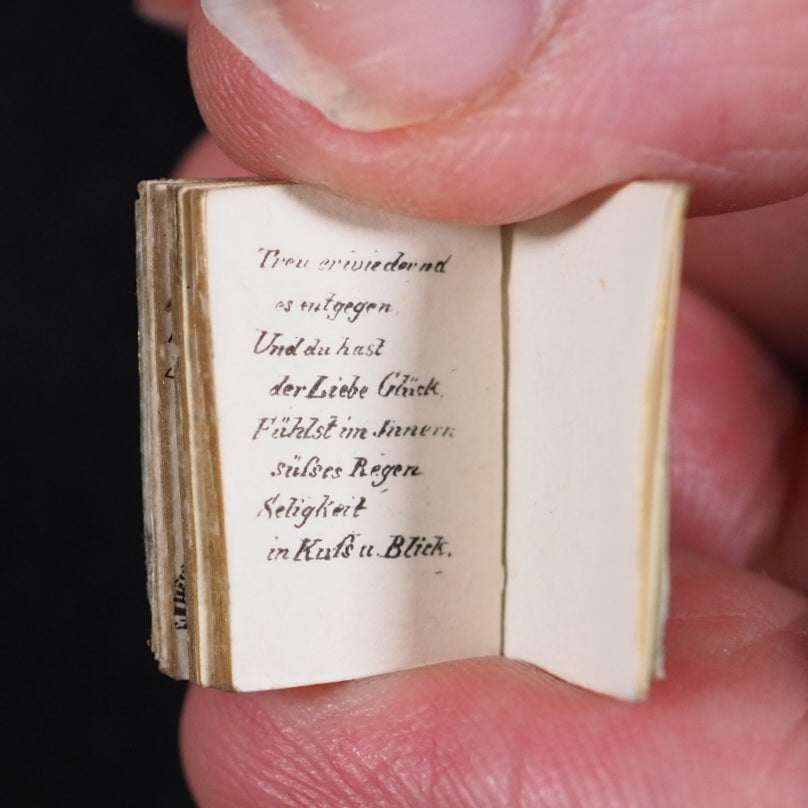 Treu erwiedernd
es entgegen,
Und du hast
der Liebe Glück,
Fühlst im Innern
süſses Regen
Seligkeit
in Kuſs u. Blick.